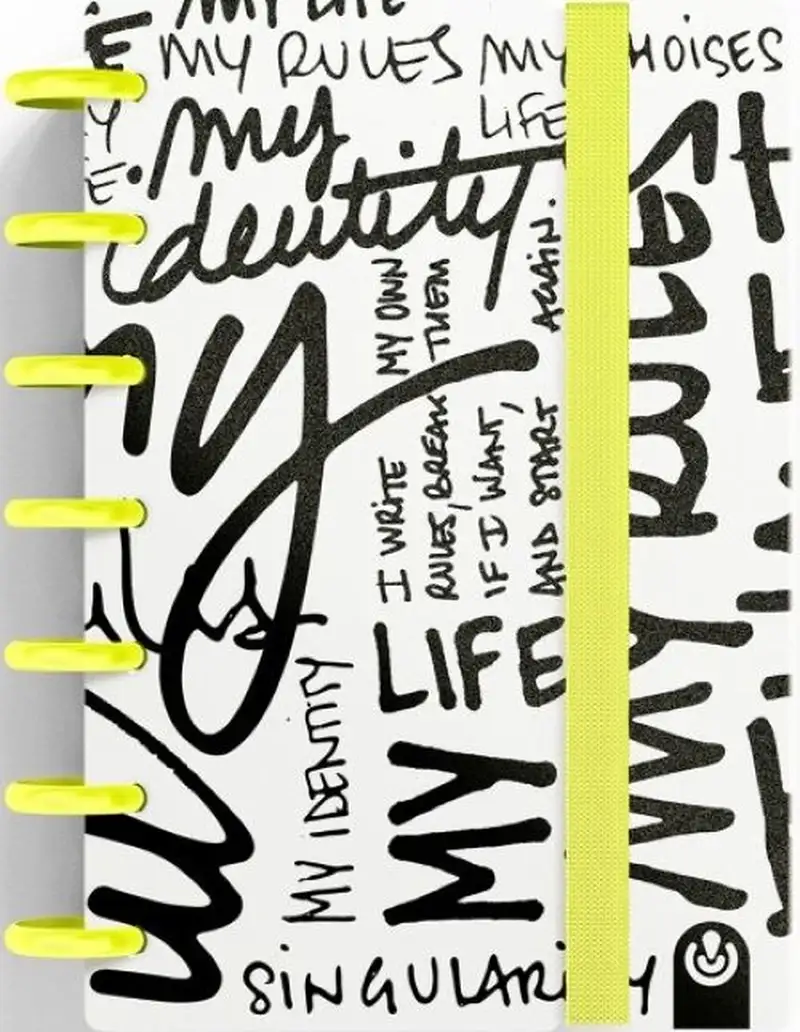 MY LIFE
MY RULES MY HOISES
LIFE
my
identity
I WRITE MY OWN
RULES, BREAK THEM
IF I WANT,
AND START AGAIN.
MY
LIFE
MY RULES
MY IDENTITY
SINGULARITY